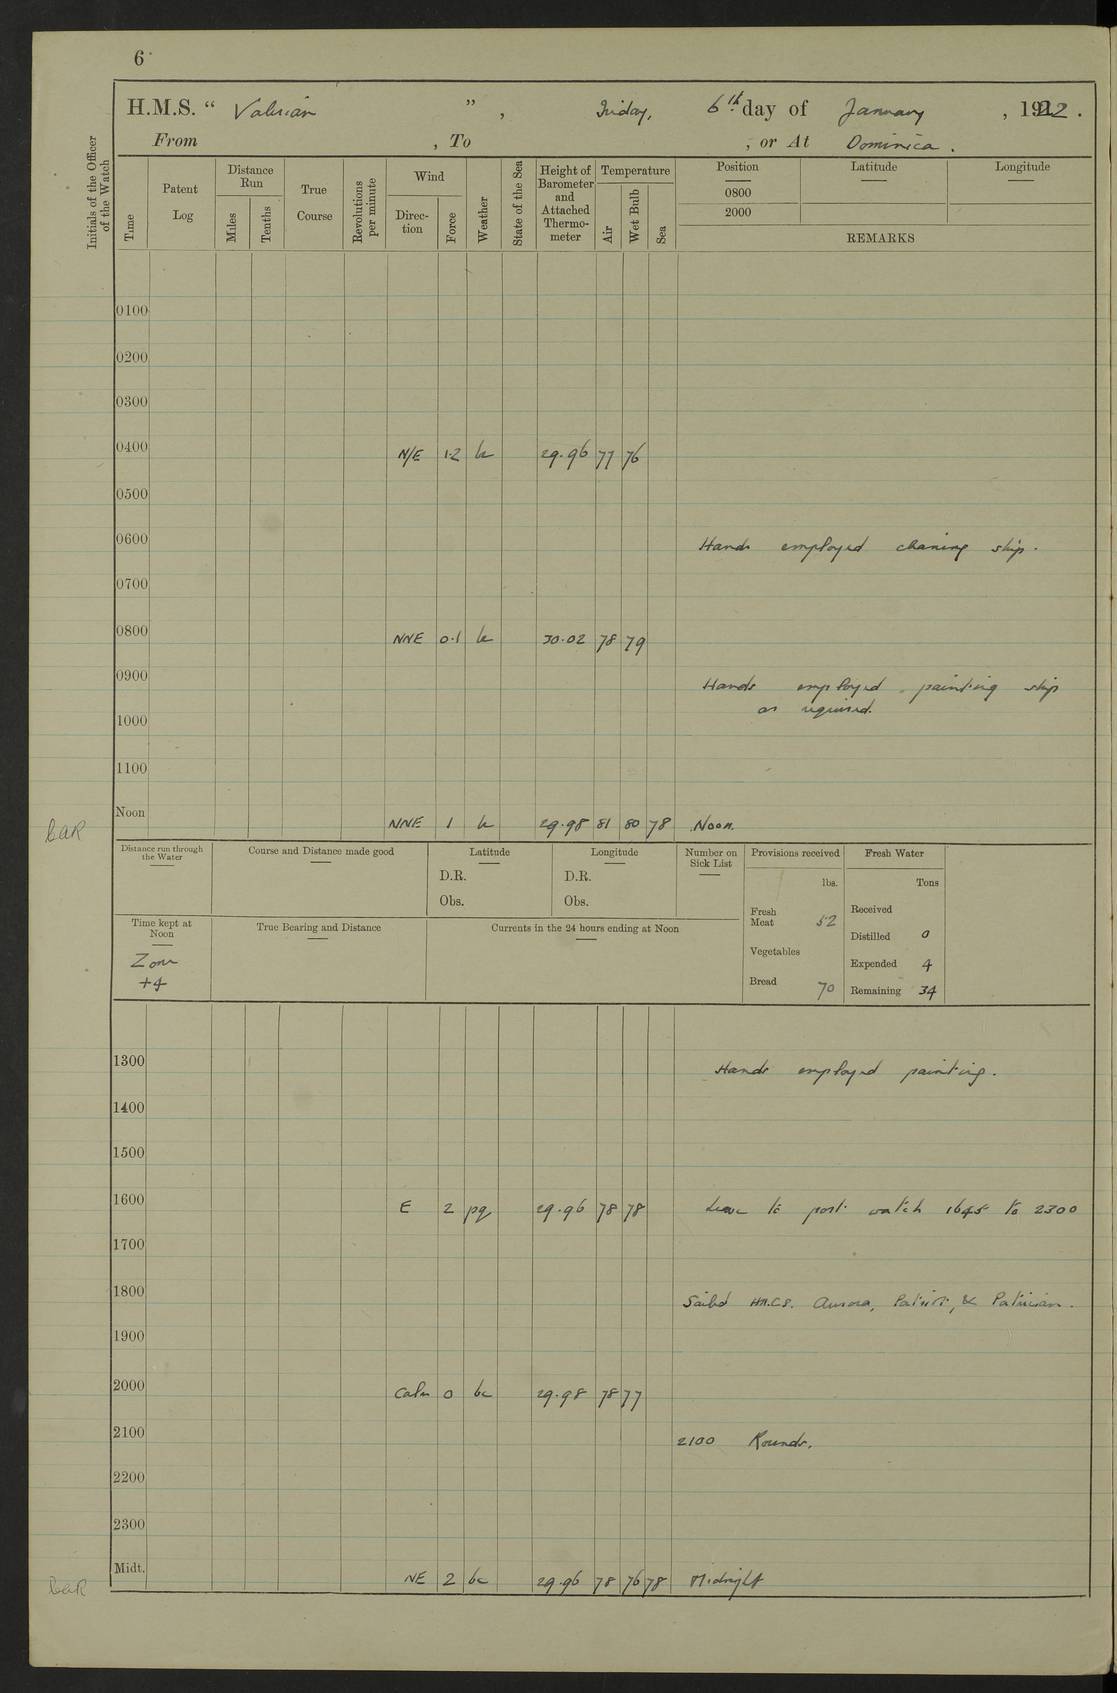 6
H.M.S. “ Valerian ”, Friday, 6th day of January, 1922.
From , To , or At Dominica.
Initials of the Officer of the Watch
Time
Patent Log
Distance Run
Miles
Tenths
True Course
Revolutions per minute
Wind
Direction
Force
Weather
State of the Sea
Height of Barometer and Attached Thermometer
Temperature
Air
Wet Bulb
Sea
Position Latitude Longitude
0800
2000
REMARKS
0100
0200
0300
0400 N/E 1·2 bc 29.96 77 76
0500
0600 Hands employed cleaning ship.
0700
0800 NNE 0·1 bc 30.02 78 79
0900 Hands employed painting ship
as required.
1000
1100
Noon NNE 1 bc 29.98 81 80 78 Noon.
Distance run through the Water
Course and Distance made good
Latitude
D.R.
Obs.
Longitude
D.R.
Obs.
Number on Sick List
Provisions received
lbs.
Fresh Meat 52
Vegetables
Bread 70
Fresh Water
Tons
Received
Distilled 0
Expended 4
Remaining 34
Time kept at Noon
Zone
+4
True Bearing and Distance
Currents in the 24 hours ending at Noon
1300 Hands employed painting.
1400
1500
1600 E 2 pq 29.96 78 78 Leave to port watch 1645 to 2300
1700
1800 Sailed H.M.C.S. Aurora, Patriot, & Patrician.
1900
2000 Calm 0 bc 29.98 78 77
2100 2100 Rounds.
2200
2300
Midt. NE 2 bc 29.96 78 76 78 Midnight